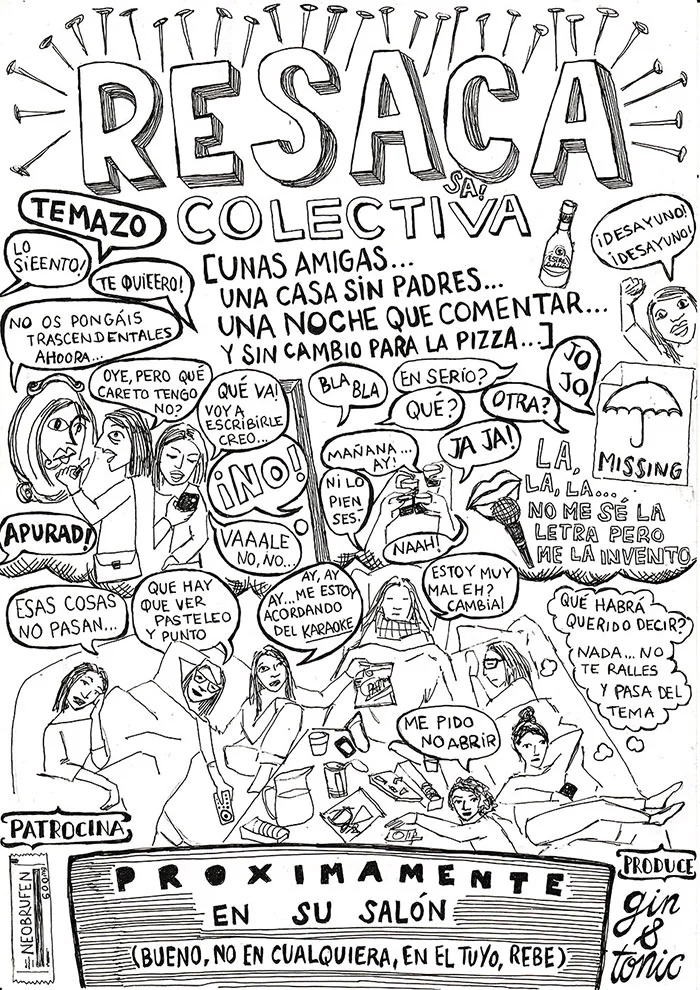 RESACA
SA!
COLECTIVA
TEMAZO
LO
SIEENTO!
TE QUIEERO!
[UNAS AMIGAS...
UNA CASA SIN PADRES...
UNA NOCHE QUE COMENTAR...
Y SIN CAMBIO PARA LA PIZZA...]
¡DESAYUNO!
¡DESAYUNO!
NO OS PONGÁIS
TRASCENDENTALES
AHOORA...
OYE, PERO QUÉ
CARETO TENGO
NO?
QUÉ VA!
VOY A
ESCRIBIRLE
CREO...
¡NO!
VAAALE
NO, NO...
APURAD!
BLA
BLA
EN SERIO?
QUÉ?
OTRA?
JO
JO
JA JA!
MAÑANA...
AY!
NI LO
PIEN
SES.
NAAH!
MISSING
LA,
LA, LA...
NO ME SÉ LA
LETRA PERO
ME LA INVENTO
ESAS COSAS
NO PASAN...
QUE HAY
QUE VER
PASTELEO
Y PUNTO
AY, AY
AY...ME ESTOY
ACORDANDO
DEL KARAOKE
ESTOY MUY
MAL EH?
CAMBIA!
QUÉ HABRÁ
QUERIDO DECIR?
NADA... NO
TE RALLES
Y PASA DEL
TEMA
ME PIDO
NO ABRIR
PATROCINA
NEOBRUFEN
600MG
PROXIMAMENTE
EN SU SALÓN
(BUENO, NO EN CUALQUIERA, EN EL TUYO, REBE)
PRODUCE
gin
&
tonic